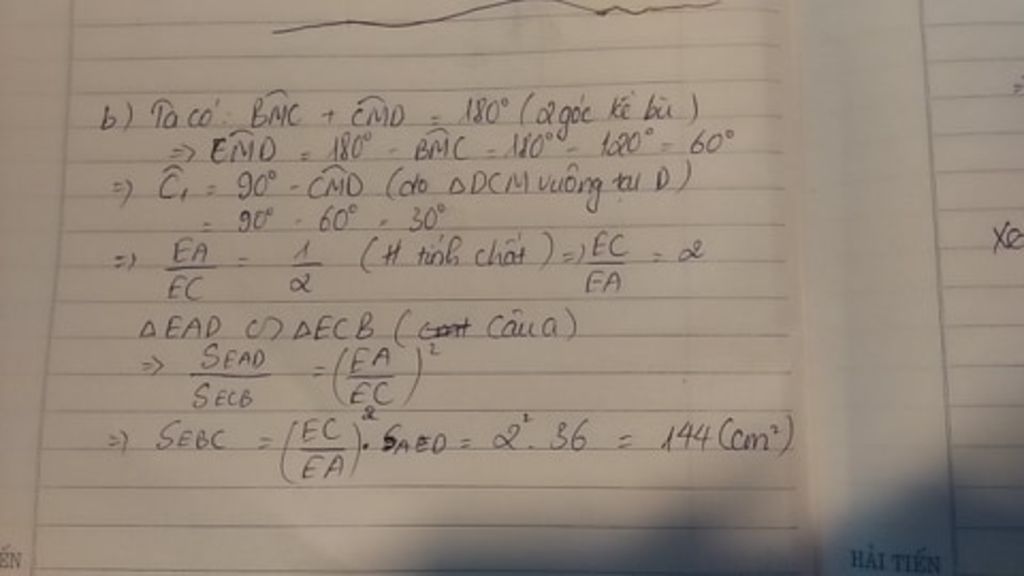 b) Ta có: BMC + CMD = 180° (2 góc kề bù)
=> CMD = 180° - BMC = 180° - 120° = 60°
=> C₁ = 90° - CMD (do △DCM vuông tại D)
= 90° - 60° = 30°
=> EA/EC = 1/2 (# tính chất) => EC/EA = 2
△EAD ∽ △ECB (câu a)
=> SEAD/SECB = (EA/EC)²
=> SEBC = (EC/EA)² . SAED = 2² . 36 = 144 (cm²)
Xe
ẾN
HẢI TIẾN